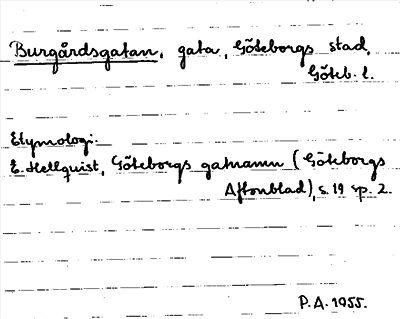 Burgårdsgatan, gata, Göteborgs stad,
Göteb. l.
Etymologi:
E. Hellquist, Göteborgs gatnamn (Göteborgs
Aftonblad), s. 19 sp. 2.
P.A. 1955.